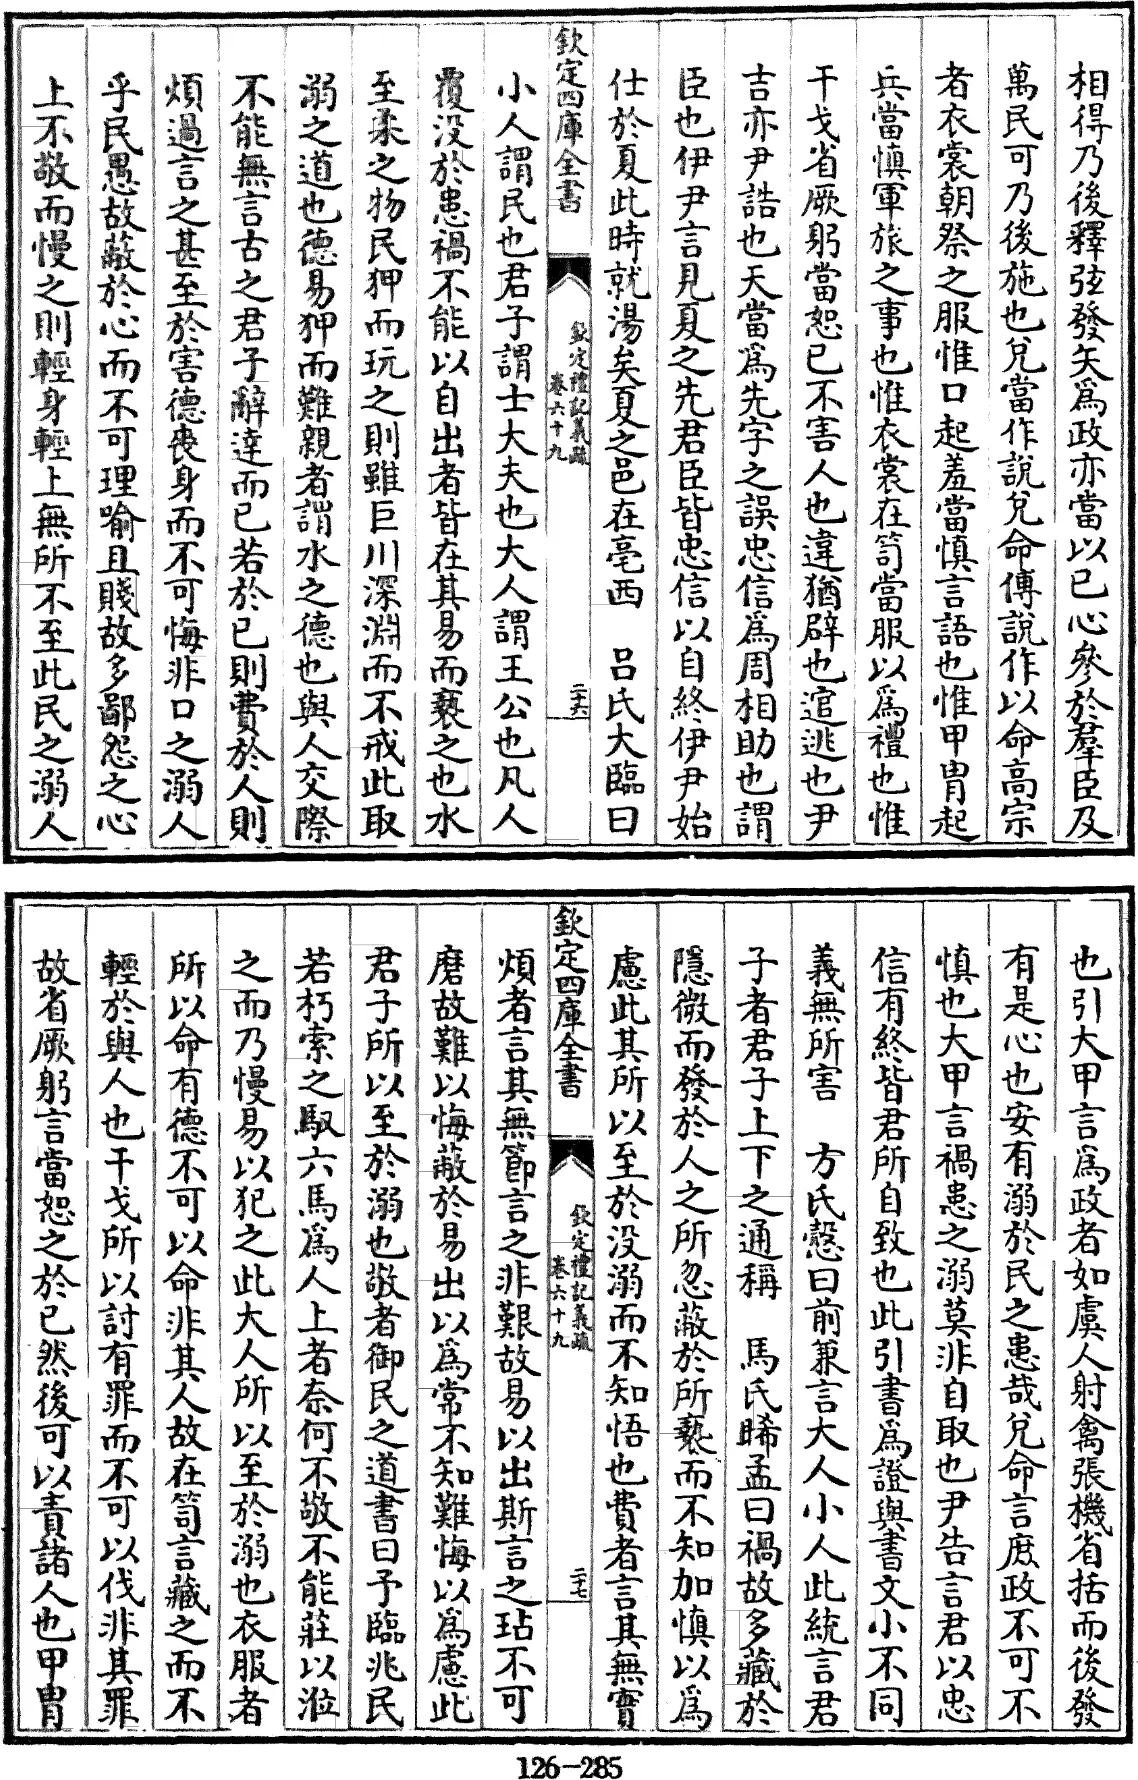 相得乃後釋弦發矢爲政亦當以已心參於羣臣及
萬民可乃後施也兌當作說兌命傅說作以命高宗
者衣裳朝祭之服惟口起羞當慎言語也惟甲胄起
兵當慎軍旅之事也惟衣裳在笥當服以爲禮也惟
干戈省厥躬當恕已不害人也違猶辟也逭逃也尹
吉亦尹誥也天當爲先字之誤忠信爲周相助也謂
臣也伊尹言見夏之先君臣皆忠信以自終伊尹始
仕於夏此時就湯矣夏之邑在亳西　呂氏大臨曰
欽定四庫全書
欽定禮記義疏
卷六十九
二十六
小人謂民也君子謂士大夫也大人謂王公也凡人
覆没於患禍不能以自出者皆在其易而褻之也水
至柔之物民狎而玩之則雖巨川深淵而不戒此取
溺之道也德易狎而難親者謂水之德也與人交際
不能無言古之君子辭達而已若於已則費於人則
煩過言之甚至於害德喪身而不可悔非口之溺人
乎民愚故蔽於心而不可理喻且賤故多鄙怨之心
上不敬而慢之則輕身輕上無所不至此民之溺人
也引大甲言爲政者如虞人射禽張機省括而後發
有是心也安有溺於民之患哉兌命言庶政不可不
慎也大甲言禍患之溺莫非自取也尹告言君以忠
信有終皆君所自致也此引書爲證與書文小不同
義無所害　方氏慤曰前兼言大人小人此統言君
子者君子上下之通稱　馬氏晞孟曰禍故多藏於
隱微而發於人之所忽蔽於所褻而不知加慎以爲
慮此其所以至於没溺而不知悟也費者言其無實
欽定四庫全書
欽定禮記義疏
卷六十九
二十七
煩者言其無節言之非艱故易以出斯言之玷不可
磨故難以悔蔽於易出以爲常不知難悔以爲慮此
君子所以至於溺也敬者御民之道書曰予臨兆民
若朽索之馭六馬爲人上者奈何不敬不能莊以涖
之而乃慢易以犯之此大人所以至於溺也衣服者
所以命有德不可以命非其人故在笥言藏之而不
輕於與人也干戈所以討有罪而不可以伐非其罪
故省厥躬言當恕之於已然後可以責諸人也甲胄
126-285